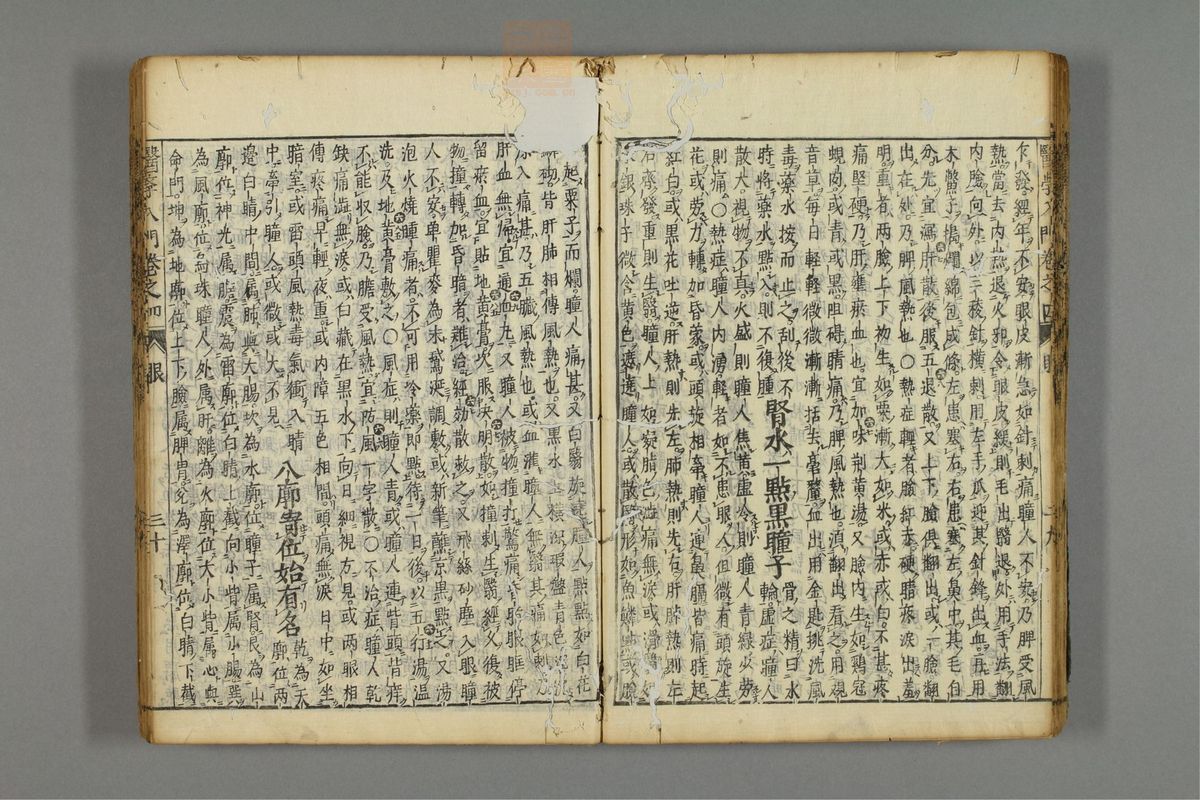 醫學入門 卷之四 眼 二十九
久發經年不安眼皮漸急如針刺痛瞳人不安乃脾受風
熱當去內恙退火邪令眼皮緩則毛出醫退外用手法翻
內瞼向外以三稜針橫刺用左手爪迎其針鋒出血再用
木鱉子搗爛綿包成條左患塞右右患塞左鼻中其毛自
分先宜瀉肝散後服五退散又上下瞼俱翻出或一瞼翻
出在外乃脾風熱也〇熱症輕者瞼紅赤硬暗疼淚出羞
明重者兩瞼上下初生如粟漸大如米或赤或白不甚疼
痛堅硬乃肝壅瘀血也宜加味荊黃湯又瞼內生如鷄冠
蜆肉或青或黑阻碍睛痛乃脾風熱也須翻出看之用
音草每日輕輕微微漸漸括去毫釐血出用金匙挑洗風
毒藥水按而止之刮後不
時將藥水點入則不復腫腎水一點黑瞳子骨之精曰水輪虛症瞳人
散大視物不真火盛則瞳人焦黃虛冷則瞳人青綠必勞
則痛〇熱症瞳人內湧輕者如不患眼人但微有頭旋生
花或勞力轉加昏蒙或頭旋相牽瞳人連鼻隔皆痛時起
紅白或黑花吐逆肝熱則先左肺熱則先右肝肺熱則左
右齊發重則生翳瞳人上如凝脂色澁痛無淚或
銀珠子微含黃色遮瞳人或散翳形如魚鱗或
起粟子而爛瞳人痛甚又白翳旋瞳人點點如白花
皆肝肺相傳風熱也又黑水盤青色沉
入痛甚乃五臟風熱也或血灌瞳人其痛如刺
肝血無歸宜通血丸又瞳人被物撞打驚痛昏眼眶停
留瘀血宜貼地黃膏次服決明散如撞刺生翳經久復被
物撞轉加昏暗者難治經効散救之又飛絲砂塵入眼瞳
人不安單瞿麥為末鵞涎調敷或新筆蘸京黑點之又湯
泡火燒腫痛者不可用冷藥即點待二日後以五行湯溫
洗及地黃膏敷之〇風症則瞳人青或瞳人連眥頭背痒
不能収瞼乃膽受風熱宜防風一字散〇不治症瞳人乾
缺痛澁無淚或白藏在黑水下向日細視左見或兩眼相
傳疼痛早輕夜重或內障五色相間頭痛無淚日中如坐
暗室或雷頭風熱毒氣衝入睛
中牽引瞳人或微或大不見八廓寄位始有名乾為天廓位兩
邊白睛中間屬肺與大腸坎為水廓位瞳子屬腎艮為山
廓位神光屬膽震為雷廓位白睛上截向小眥屬小腸巽
為風廓位烏珠瞳人外屬肝離為火廓位大小眥屬心與
命門坤為地廓位上下瞼屬脾胃兌為澤廓位白睛下截
醫學入門 卷之四 眼 三十